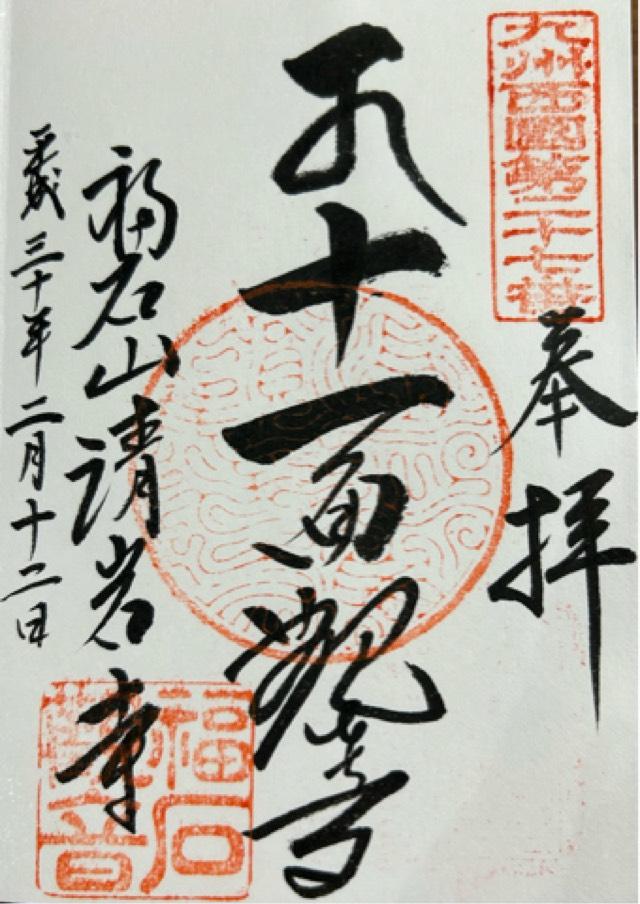 九州西國第二十七番
奉拝
十一面観音
福石山清岩寺
平成三十年二月十二日
福石
觀音